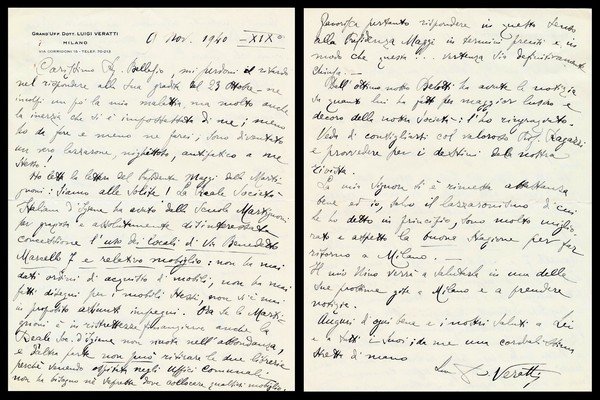 GRAND'UFF. DOTT. LUIGI VERATTI
MILANO
VIA CORRIDONI 15 - TELEF. 70-213
6 Nov. 1940 - XIX°
Carissimo mi perdoni il ritardo
nel rispondere alla Sua gradita del 23 Ottobre - ne
incolpi un po' la mia malattia, ma molto anche
la inerzia che si è impossessata di me; meno
ho da fare e meno ne farei; sono diventato
un vero lazzarone, antipatico a me
stesso!
Ho letto la lettera del Presidente Maggi della Marti-
gnoni: siamo alle solite! La reale Società
Italiana d'Igiene ha avuto dalla Scuola Martignoni
per proposta e assolutamente disinteressata
concessione l'uso dei locali di Via Benedetto
Marcello 7 e relativo mobiglio: non ha mai
dati ordini di acquisto di mobili, non ha mai
fatti disegni per i mobili stessi, non si è mai
in proposito assunti impegni. Ora se la Marti-
gnoni è in ristrettezze finanziarie anche la
Reale Soc. d'Igiene non nuota nell'abbondanza,
e d'altra parte non può ritirare le due librerie
perchè venendo ospitata negli Uffici Comunali
non ha bisogno nè saprebbe dove collocare qualsiasi mobiglio.
Favorisca pertanto rispondere in questo senso
alla Presidenza Maggi in termini precisi e in
modo che questa vertenza sia definitivamente
chiusa. -
Dall'ottimo nostro Belotti ho avuta la notizia
di quanto lui ha fatto per maggior lustro e
decoro della nostra Società: l'ho ringraziato.
Veda di consigliarsi col valoroso Prof. Ragazzi
e provvedere per i destini della nostra
rivista.
La mia Signora si è rimessa abbastanza
bene ed io, salvo il lazzaronismo di cui
le ho detto in principio, sono molto miglio-
rato e aspetto la buona stagione per far
ritorno a Milano.
Il mio Nino verrà a salutarla in una delle
sue prossime gite a Milano e a prendere
notizie.
Auguri d'ogni bene e i nostri saluti a Lei
e a tutti i suoi; da me una cordialissima
stretta di mano
Veratti